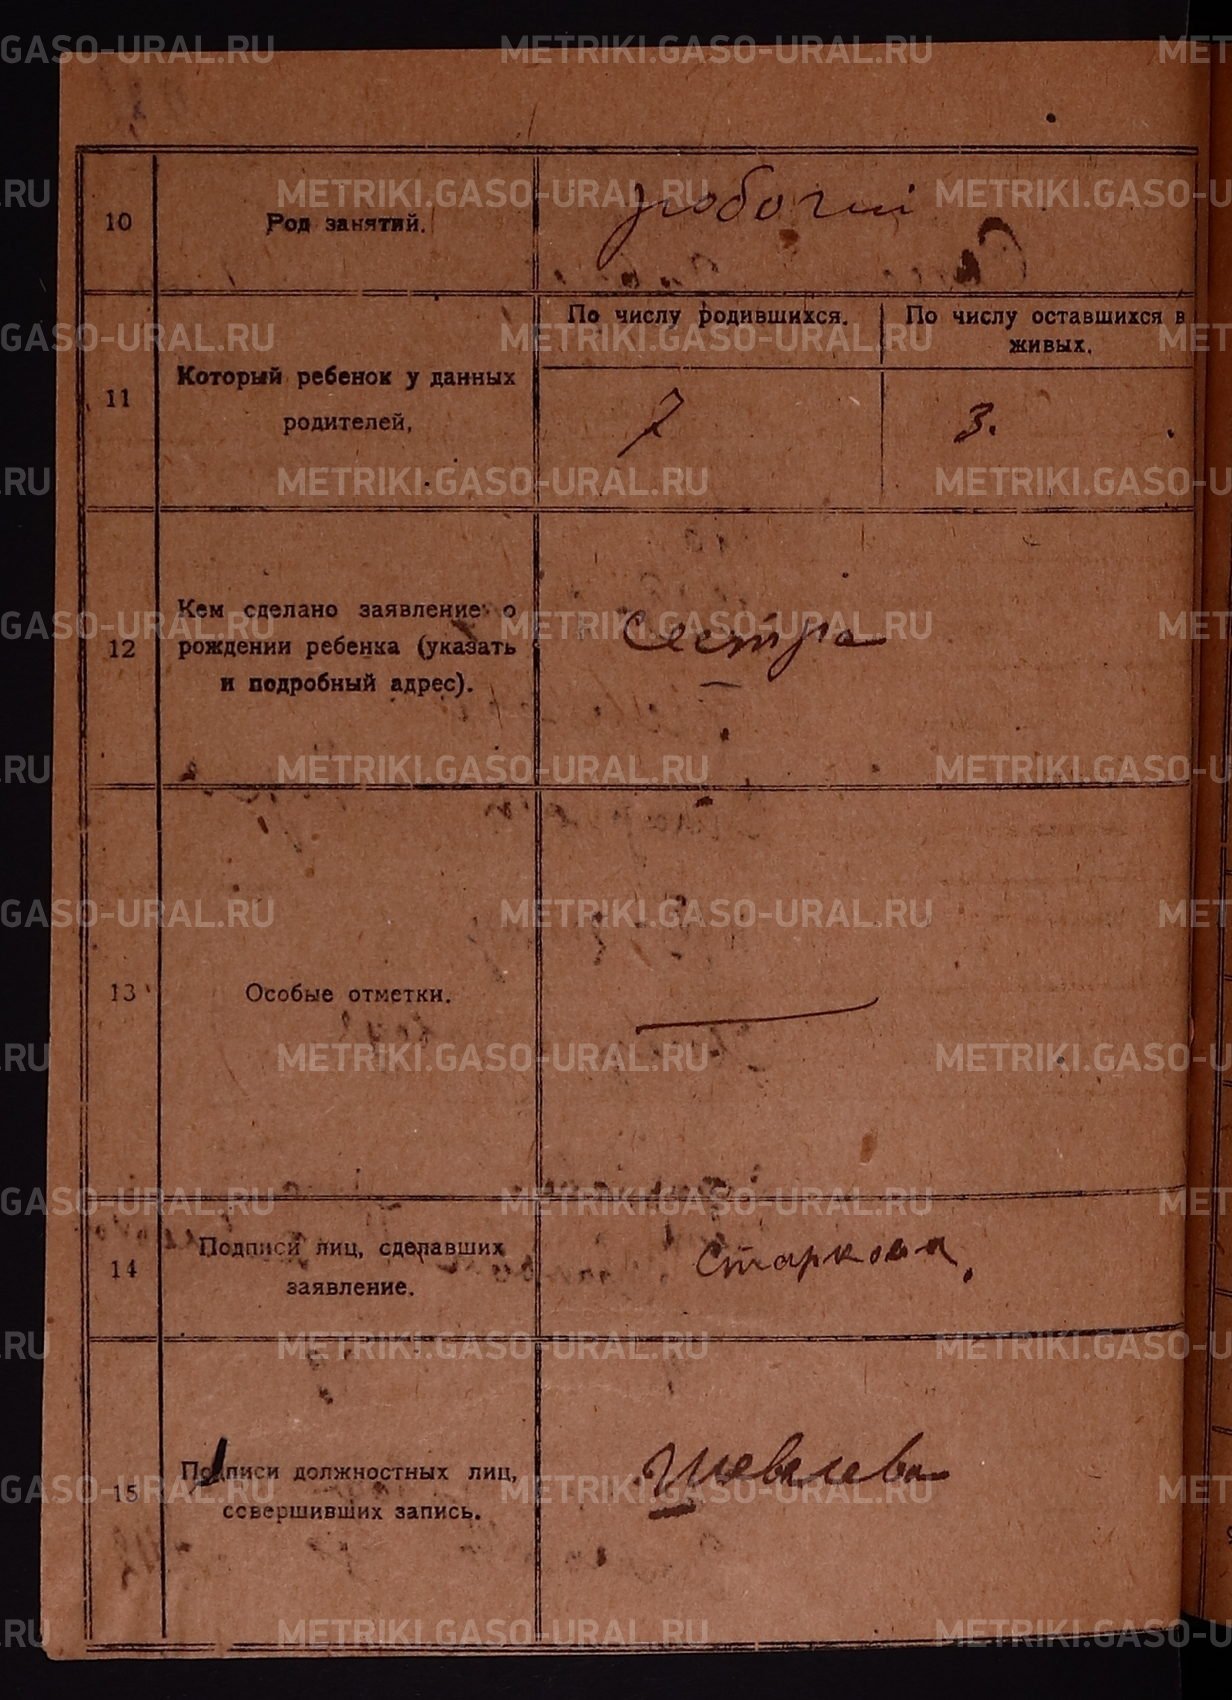 10 Род занятий. рабочий
По числу родившихся. По числу оставшихся в
живых.
11 Который ребенок у данных
родителей,
7 3.
12 Кем сделано заявление о
рождении ребенка (указать
и подробный адрес).
Сестра
13 Особые отметки.
14 Подписи лиц, сделавших
заявление.
Старкова
15 Подписи должностных лиц,
совершивших запись.
METRIKI.GASO-URAL.RU